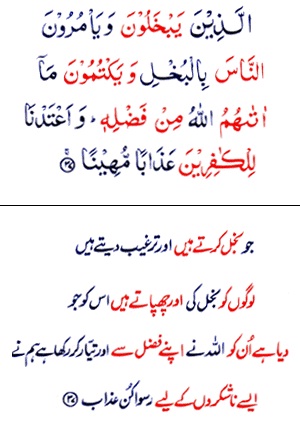 الَّذِيْنَ يَبْخَلُوْنَ وَيَاْمُرُوْنَ
النَّاسَ بِالْبُخْلِ وَيَكْتُمُوْنَ مَآ
اٰتٰىهُمُ اللّٰهُ مِنْ فَضْلِهٖ ؕ وَ اَعْتَدْنَا
لِلْكٰفِرِيْنَ عَذَابًا مُّهِيْنًا ۚ ﴿۳۷﴾
جو بخل کرتے ہیں اور ترغیب دیتے ہیں
لوگوں کو بخل کی اور چھپاتے ہیں اس کو جو
دیا ہے اُن کو اللہ نے اپنے فضل سے اور تیار کر رکھا ہے ہم نے
ایسے ناشکروں کے لیے رسوا کُن عذاب ﴿۳۷﴾